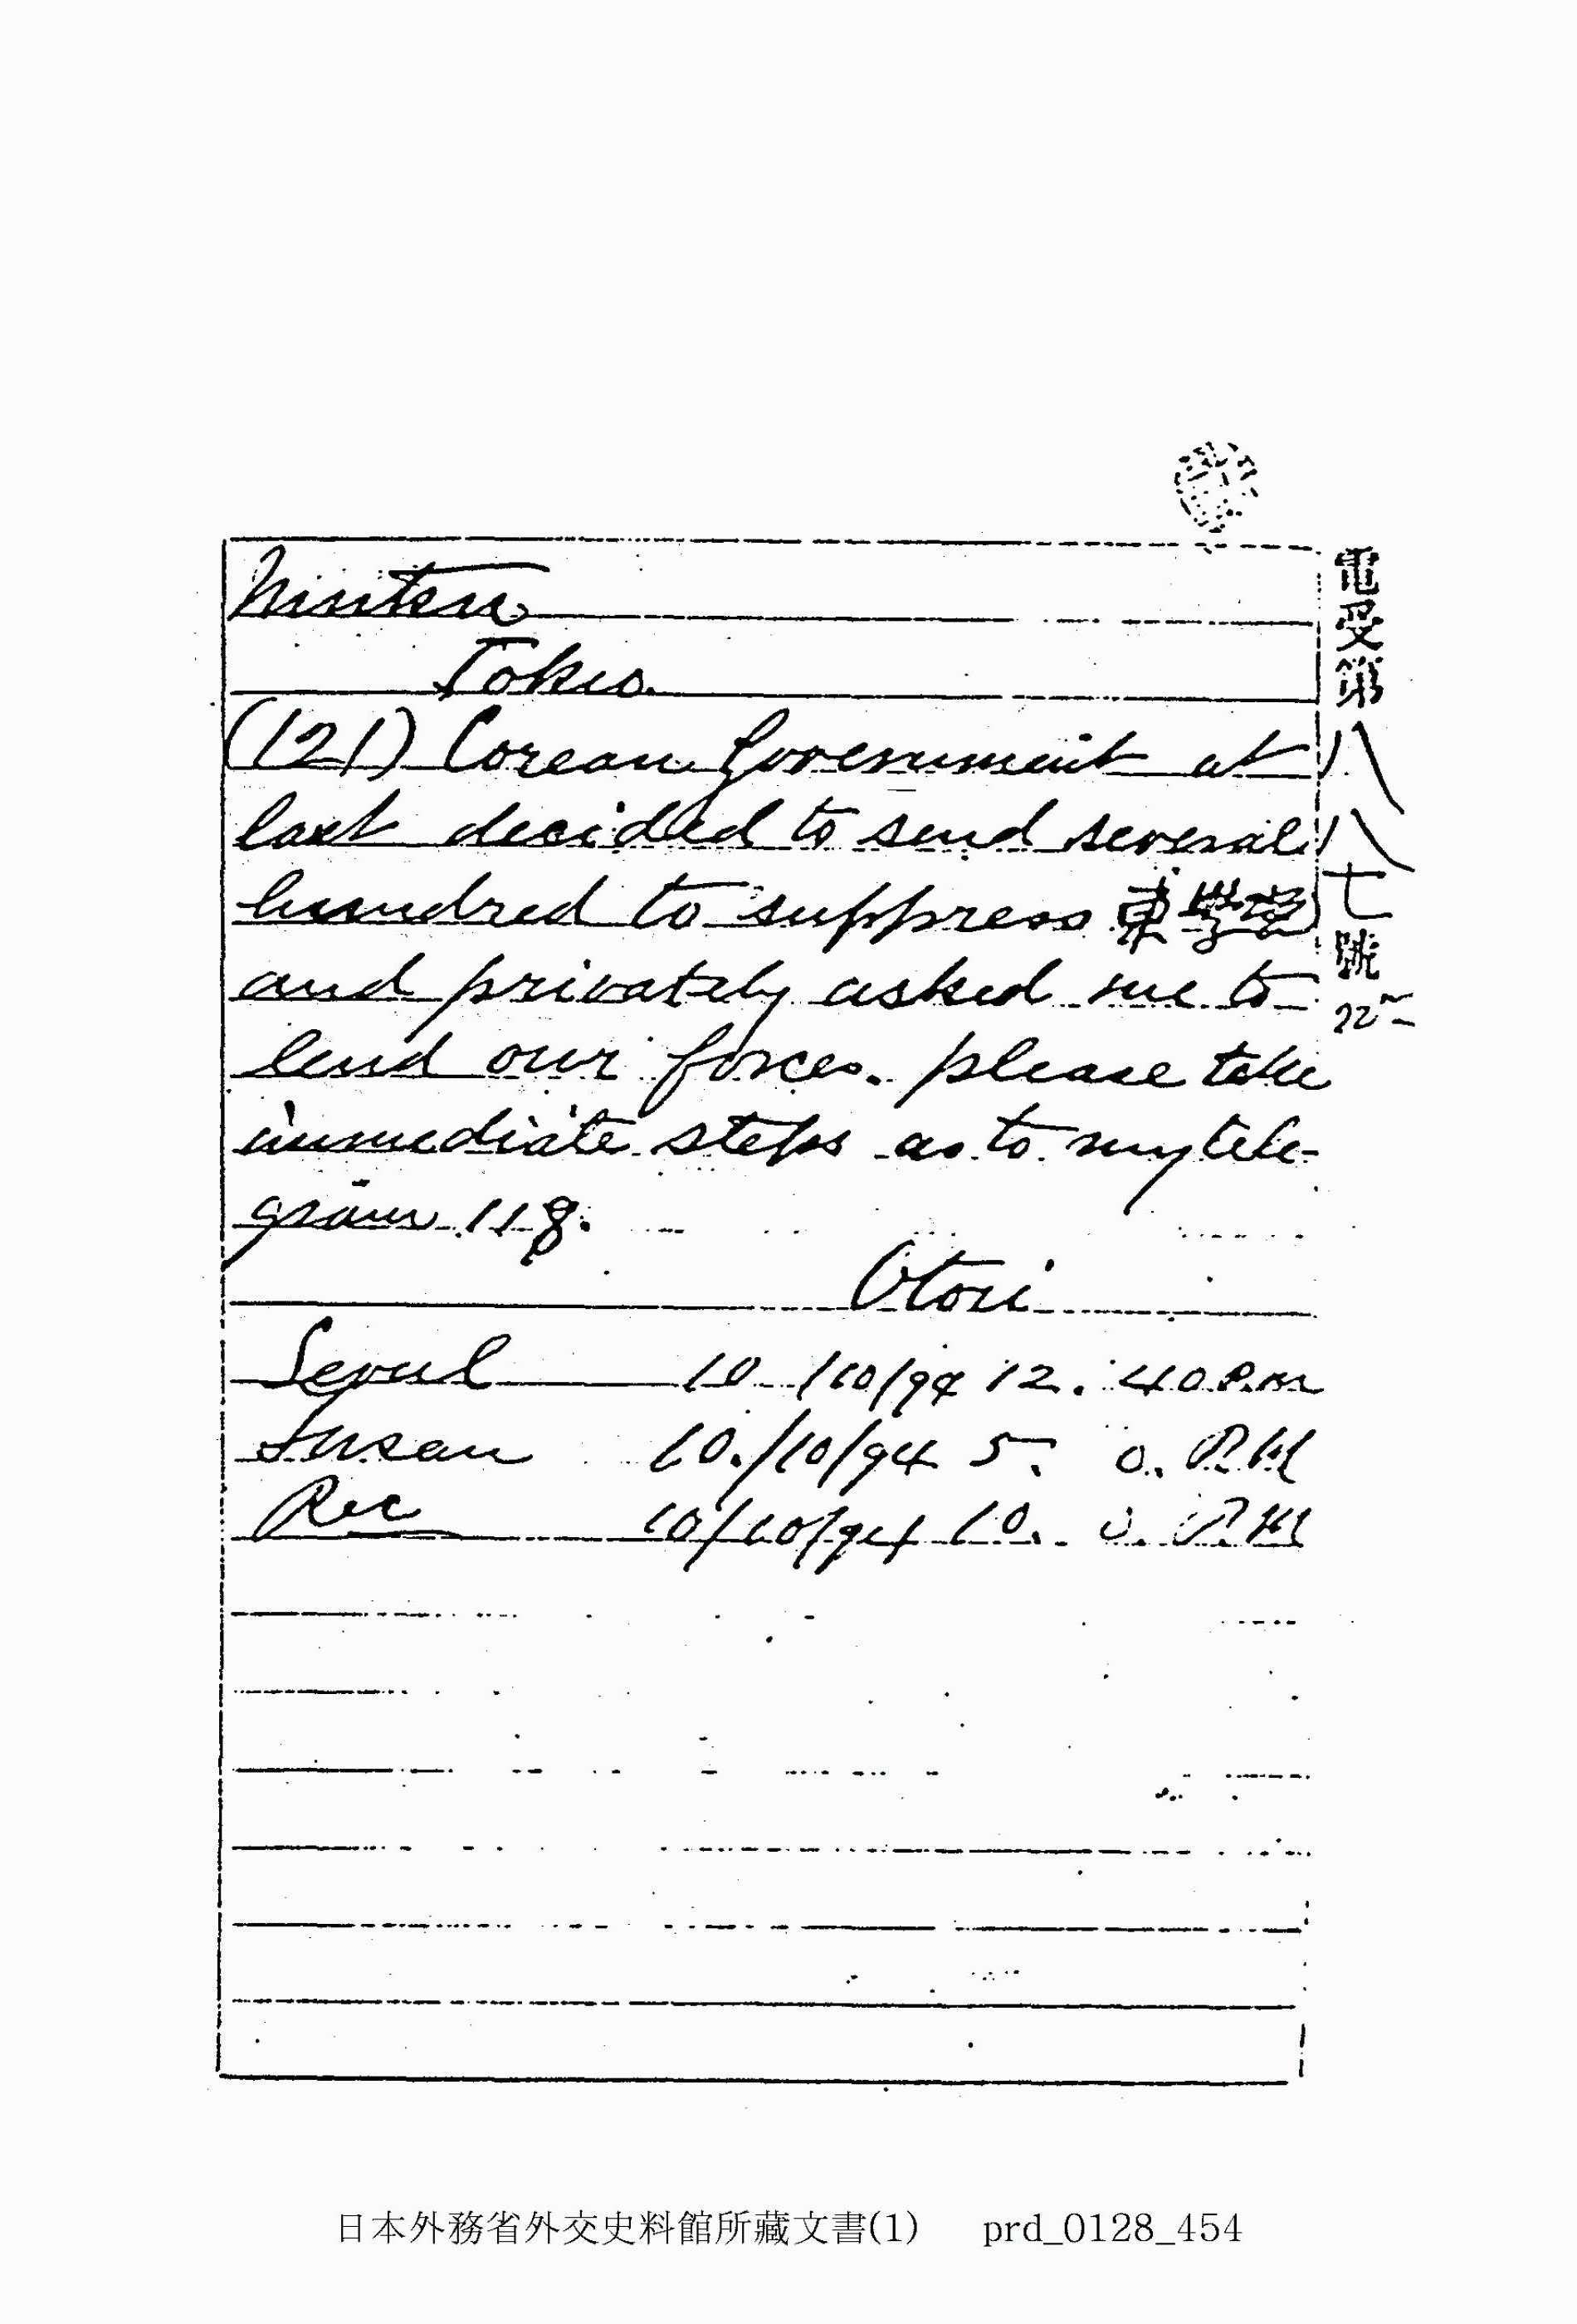 Mutsu
Tokio.
(121) Corean Government at
last decided to send several
hundred to suppress 東學黨
and privately asked me to
lend our forces. please take
immediate steps as to my tele-
gram 118.
Otori
Seoul 10/10/94 12.40 P.M
Fusan 10./10/94 5. 0. P.M
Rec 10/10/94 10. 0. P.M
電受第八八七號
日本外務省外交史料館所藏文書(1) prd_0128_454